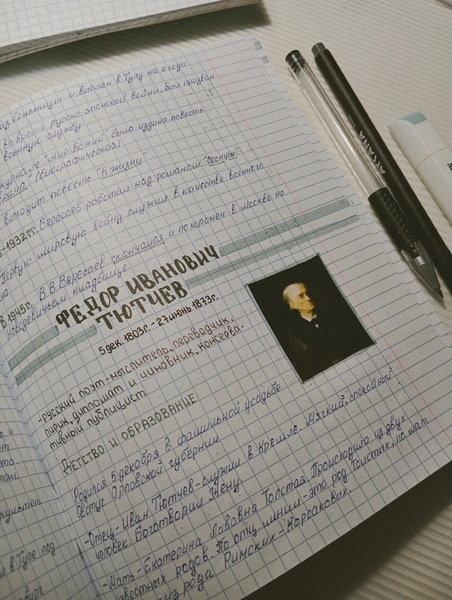 и в Тулу на 4 года
во время Русско-японской войны, был призван
военную службу
журнале "Мир Божий" была издана повесть
(биографическая)
Выходит повесть "В жизни"
-1932гг. Вересаев работал над романом "Сёстры"
Первую мировую войну служил в качестве военного
В 1945г. В.В.Вересаев скончался и похоронен в Москве на
Новодевичьем кладбище
ФЕДОР ИВАНОВИЧ
ТЮТЧЕВ
5 дек. 1803г.- 27 июнь 1873г.
-русский поэт-мыслитель, переводчик,
лирик, дипломат и чиновник, консерва-
тивный публицист
ДЕТСТВО И ОБРАЗОВАНИЕ
Родился 5 декабря в фамильной усадьбе
Овстуг Орловской губернии
-Отец- Иван Тютчев-служил в Кремле. Мягкий, спокойный
человек. Боготворил жену.
-Мать- Екатерина Львовна Толстая. Происходила из двух
известных родов. По отц. линии-это род Толстых, по мат.
из рода Римских-Корсаковых.